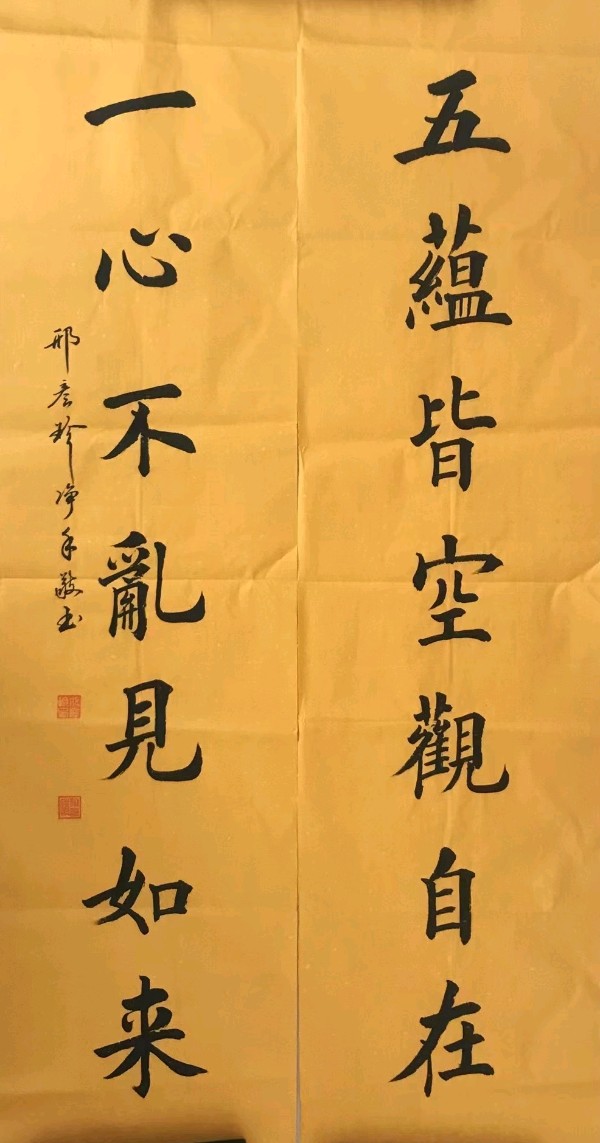 五蘊皆空觀自在
一心不亂見如来
邢彦珍净手敬书